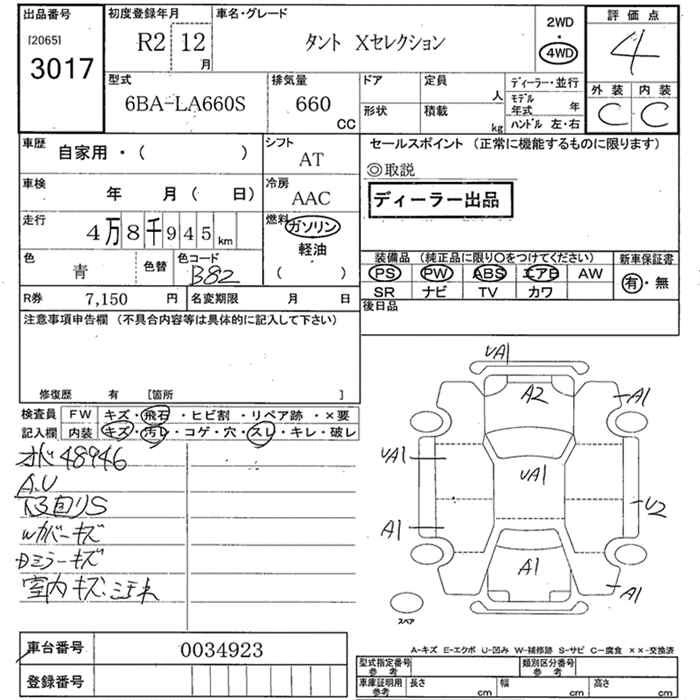 出品番号
[2065]
3017
初度登録年月
R2 12月
車名・グレード
タント Xセレクション
2WD
4WD
評価点
4
外装 内装
C C
型式
6BA-LA660S
排気量
660 CC
ドア
定員 人
形状
積載 kg
ディーラー・並行
モデル年式 年
ハンドル 左・右
車歴
自家用・( )
シフト
AT
車検
年 月( 日)
冷房
AAC
走行
4万8千945km
燃料
ガソリン
軽油
( )
色
青
色替
色コード
B82
R券 7,150 円
名変期限 月 日
セールスポイント (正常に機能するものに限ります)
◎取説
ディーラー出品
装備品 (純正品に限り○をつけてください)
PS PW ABS エアB AW
SR ナビ TV カワ
新車保証書
有・無
後日品
注意事項申告欄 (不具合内容等は具体的に記入して下さい)
修復歴 有 [箇所 ]
検査員記入欄
FW キズ・飛石・ヒビ割・リペア跡・×要
内装 キズ・汚レ・コゲ・穴・スレ・キレ・破レ
オド 48946
A.U
下回りS
Wカバーキズ
Dミラーキズ
室内キズ・
UA1
A2
A1
UA1
UA1
U2
A1
A1
A1
スペア
車台番号 0034923
登録番号
A-キズ E-エクボ U-凹み W-補修跡 S-サビ C-腐食 ××-交換済
型式指定番号 参考
類別区分番号 参考
車庫証明用 参考
長さ cm
幅 cm
高さ cm